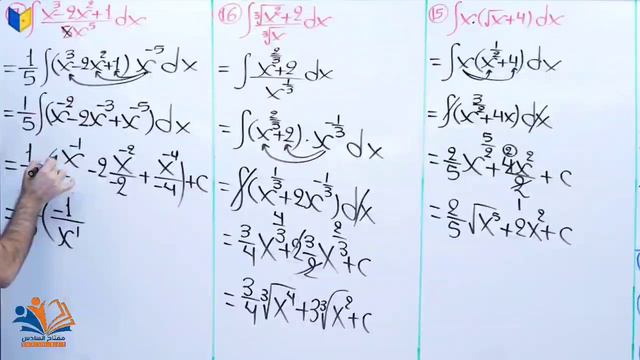 ∫ x³-2x²+1/5x⁵ dx
= 1/5 ∫(x³-2x²+1) x⁻⁵ dx
= 1/5 ∫(x⁻²-2x⁻³+x⁻⁵) dx
x⁻¹ -2 x⁻²/-2 + x⁻⁴/-4) + c
(-1/x¹
16) ∫ ∛x²+2/∛x dx
= ∫ x^(2/3)+2/x^(1/3)
= ∫(x^(2/3)+2) · x^(-1/3)
= ∫(x^(1/3)+2x^(-1/3)) dx
= 3/4 x^(4/3) + 2 3/2 x^(2/3) + c
= 3/4 ∛x⁴ + 3∛x² + c
15) ∫ x·(√x+4) dx
= ∫ x(x^(1/2)+4) dx
= ∫(x^(3/2)+4x) dx
= 2/5 x^(5/2) + 4x²/2 + c
= 2/5 √x⁵ + 2x² + c
مفتاح السادس